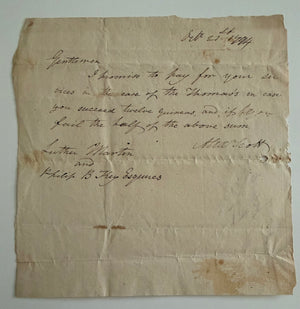 Octr 21st 1794
Gentlemen
I promise to pay for your ser
vices in the case of the Thomas's in case
you succeed twelve guineas, and, if
fail the half of the above sum
Scott
Luther Martin
and
Philip B Key Esquires